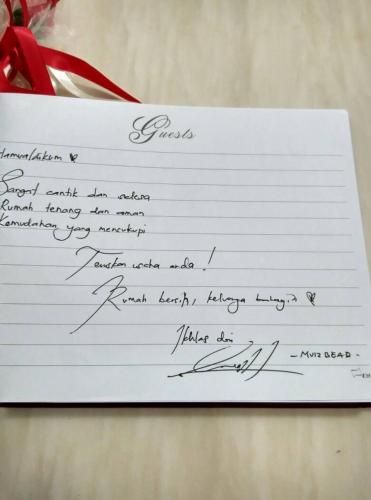 Guests
lamualaikum
Sangat cantik dan selesa
Rumah tenang dan aman
Kemudahan yang mencukupi
Teruskan usaha anda!
Rumah bersih, keluarga bahagia
Ikhlas dari
- MUIZ BEAR -